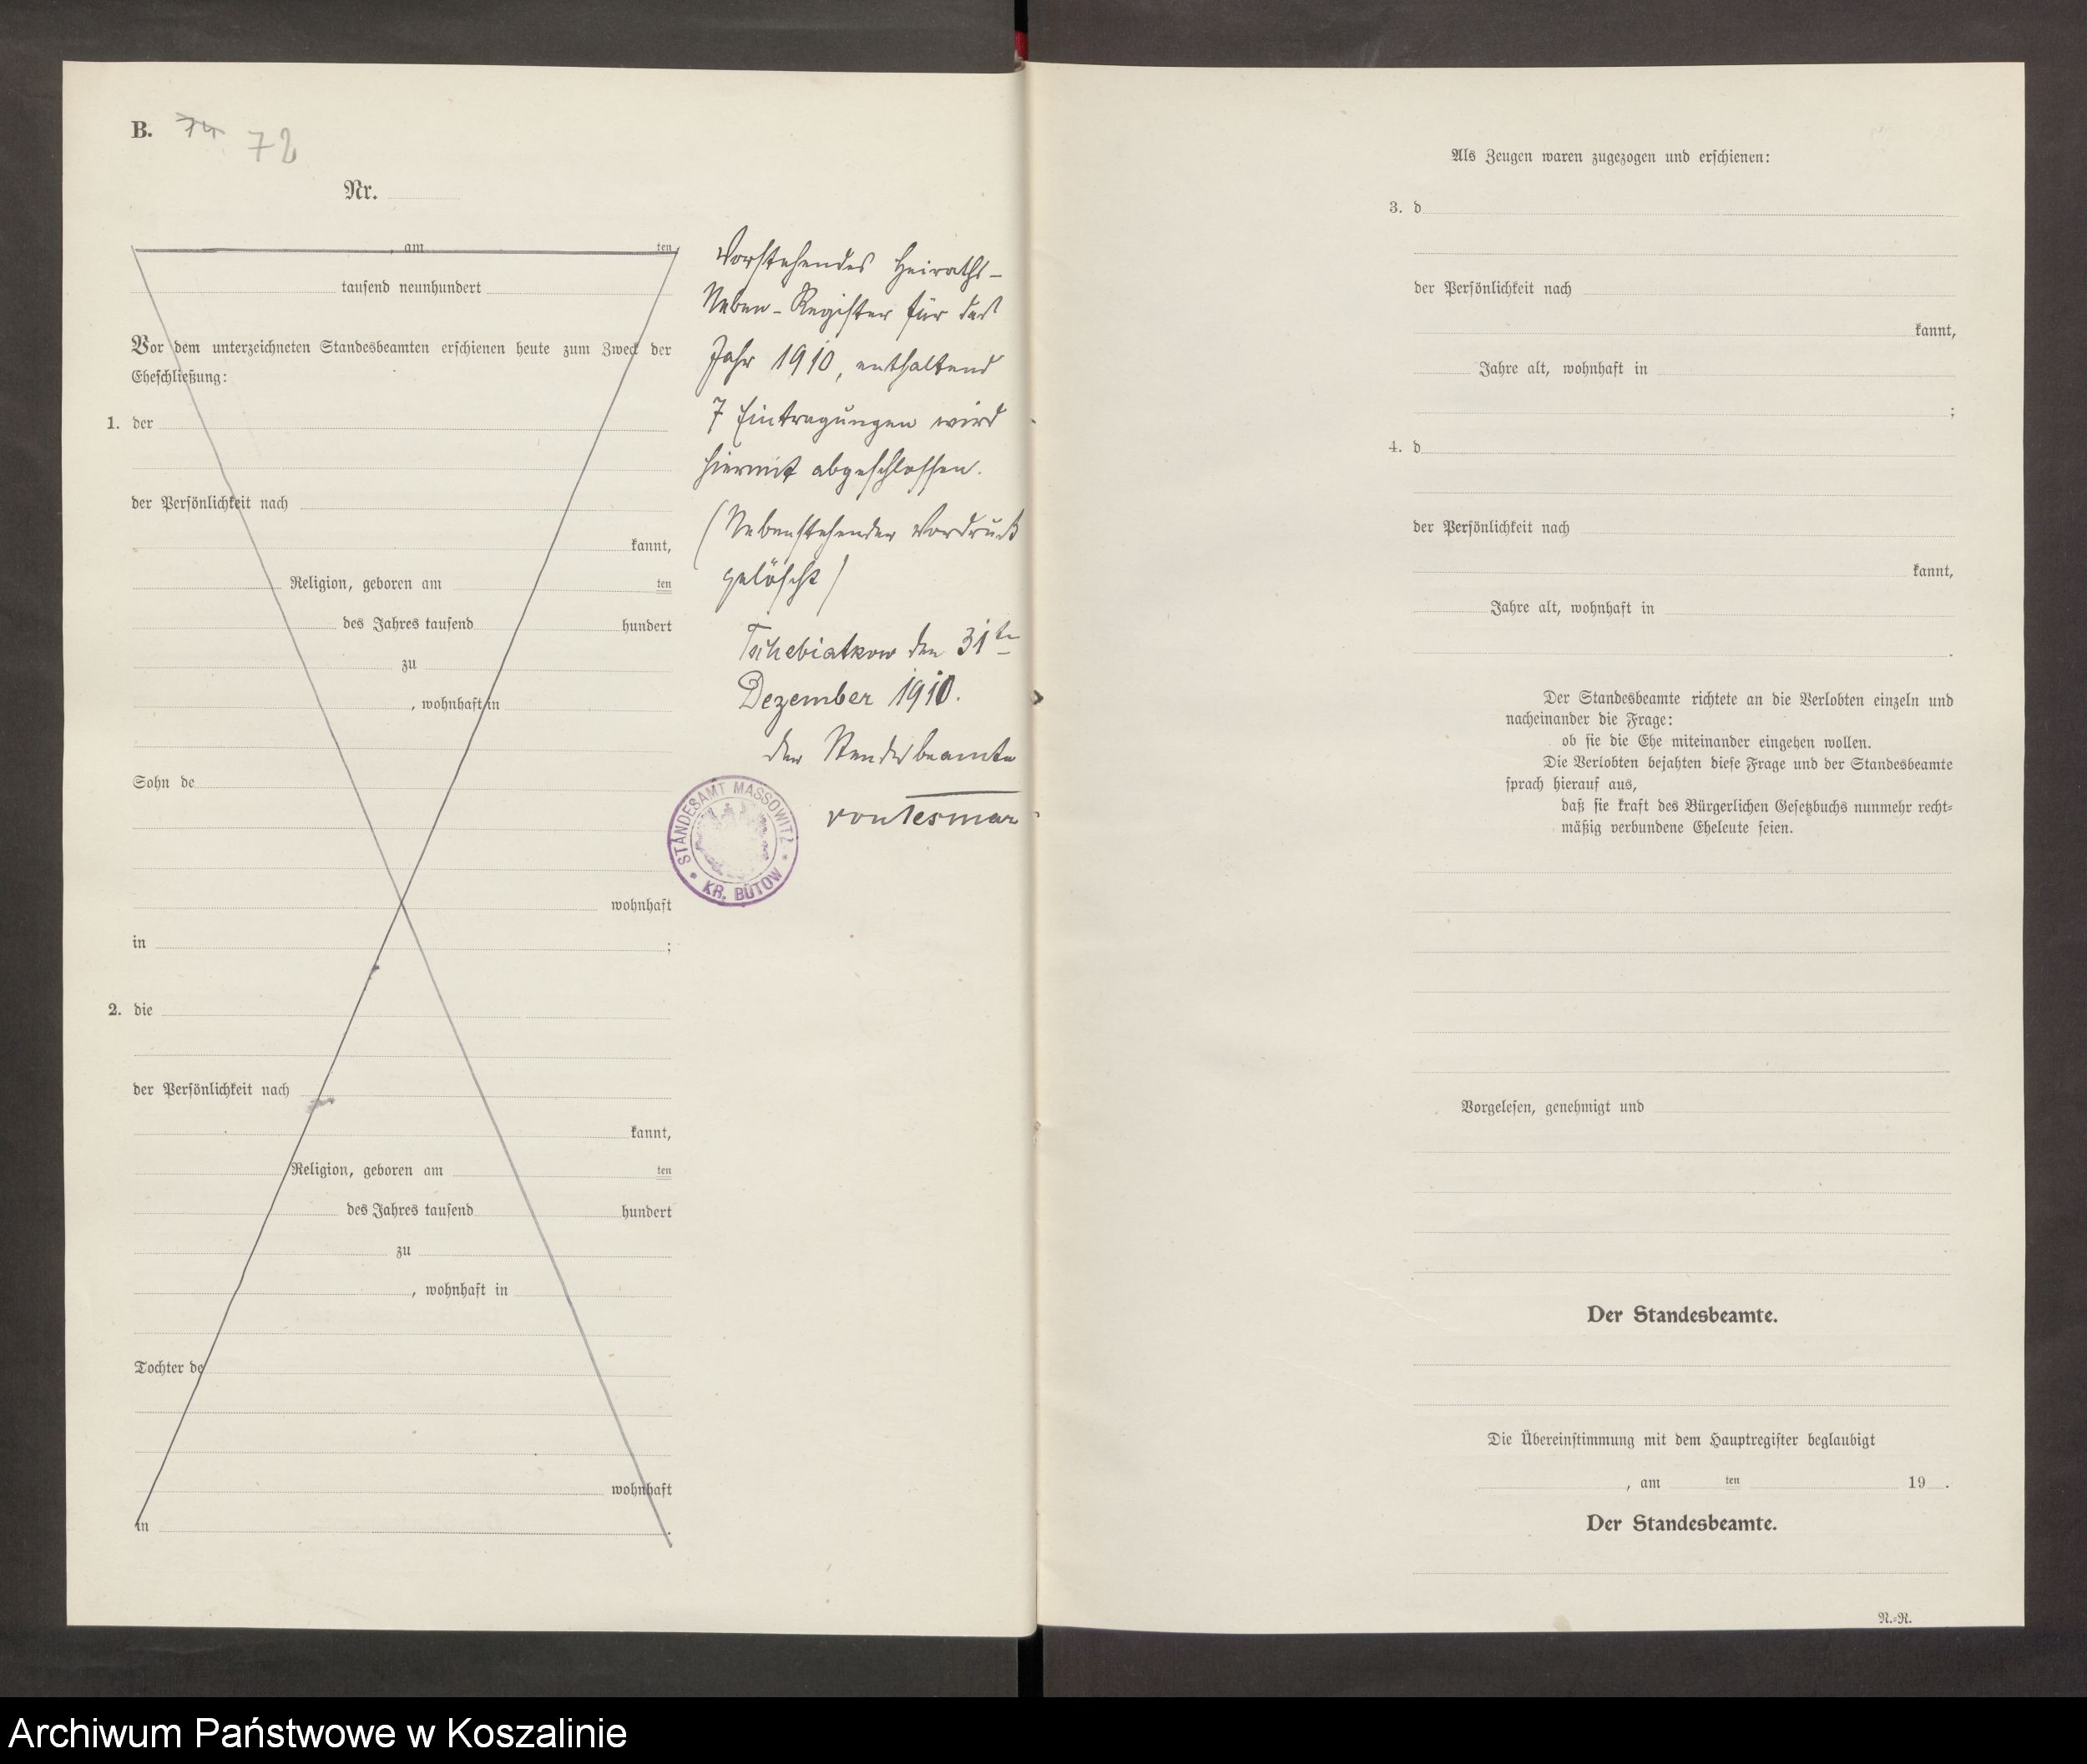 B. 74 72
Nr.
, am ten
tausend neunhundert
Vor dem unterzeichneten Standesbeamten erschienen heute zum Zweck der
Eheschließung:
1. der
der Persönlichkeit nach
kannt,
Religion, geboren am ten
des Jahres tausend hundert
zu
, wohnhaft in
Sohn de
wohnhaft
in ;
2. die
der Persönlichkeit nach
kannt,
Religion, geboren am ten
des Jahres tausend hundert
zu
, wohnhaft in
Tochter de
wohnhaft
in .
Vorstehendes Heiraths-
Neben-Register für das
Jahr 1910, enthaltend
7 Eintragungen wird
hiermit abgeschlossen.
(Nebenstehender Vordruck
gelöscht)
Tschebiatkow den 31ten
Dezember 1910.
Der Standesbeamte
STANDESAMT MASSOWITZ
* KR. BÜTOW *
Als Zeugen waren zugezogen und erschienen:
3. d
der Persönlichkeit nach
kannt,
Jahre alt, wohnhaft in
;
4. d
der Persönlichkeit nach
kannt,
Jahre alt, wohnhaft in
.
Der Standesbeamte richtete an die Verlobten einzeln und
nacheinander die Frage:
ob sie die Ehe miteinander eingehen wollen.
Die Verlobten bejahten diese Frage und der Standesbeamte
sprach hierauf aus,
daß sie kraft des Bürgerlichen Gesetzbuchs nunmehr recht-
mäßig verbundene Eheleute seien.
Vorgelesen, genehmigt und
Der Standesbeamte.
Die Übereinstimmung mit dem Hauptregister beglaubigt
, am ten 19 .
Der Standesbeamte.
N.-R.
Archiwum Państwowe w Koszalinie